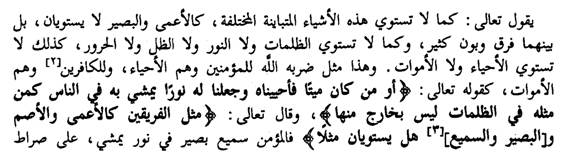 يقول تعالى: كما لا تستوي هذه الأشياء المتباينة المختلفة، كالأعمى والبصير لا يستويان، بل
بينهما فرق وبون كثير، وكما لا تستوي الظلمات ولا النور ولا الظل ولا الحرور، كذلك لا
تستوي الأحياء ولا الأموات. وهذا مثل ضربه اللَّه للمؤمنين وهم الأحياء، وللكافرين[٢] وهم
الأموات، كقوله تعالى: ﴿أو من كان ميتًا فأحييناه وجعلنا له نورًا يمشي به في الناس كمن
مثله في الظلمات ليس بخارج منها﴾، وقال تعالى: ﴿مثل الفريقين كالأعمى والأصم
و[البصير والسميع][٣] هل يستويان مثلًا﴾ فالمؤمن سميع بصير في نور يمشي، على صراط